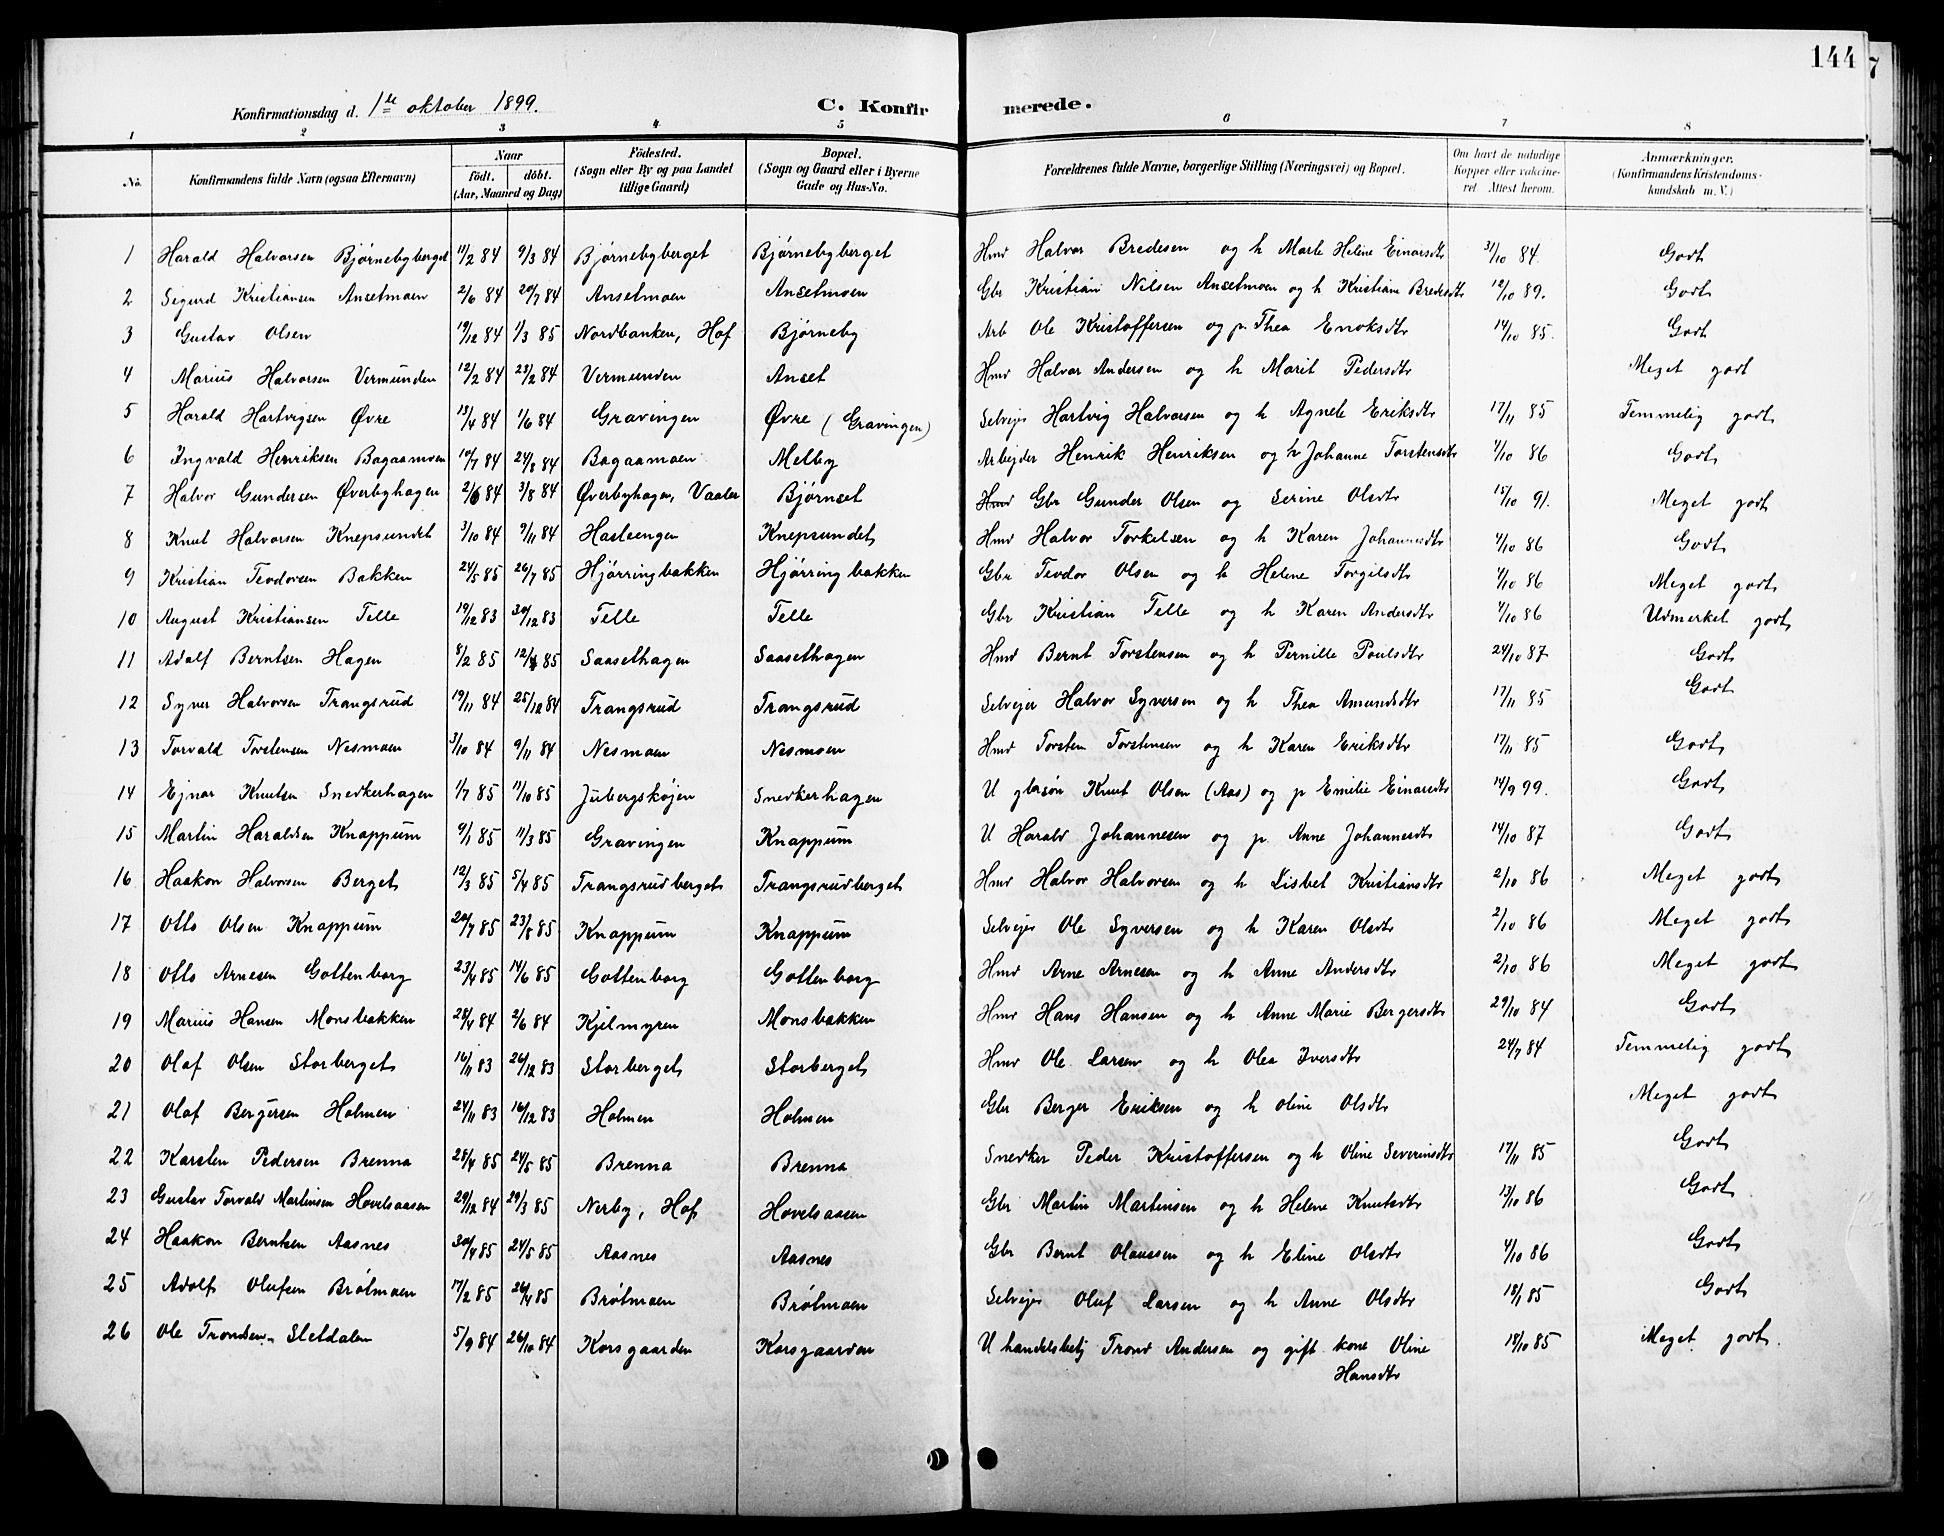 144
7
Konfirmationsdag d. 1ste oktober 1899. C. Konfirmerede.
1 2 3 4 5 6 7 8
No. Konfirmandens fulde Navn (ogsaa Efternavn) Naar födt. döbt. (Aar, Maaned og Dag) Födested. (Sogn eller By og paa Landet tillige Gaard) Bopæl. (Sogn og Gaard eller i Byerne Gade og Hus-No. Forældrenes fulde Navne, borgerlige Stilling (Næringsvei) og Bopæl. Om havt de naturlige Kopper eller vakcineret. Attest herom. Anmærkninger. (Konfirmandens Kristendomskundskab m. V.)
1 Harald Halvorsen Bjørnebyberget 11/2 84 9/3 84 Bjørnebyberget Bjørnebyberget Hmd Halvor Bredesen og h Marte Helene Einarsdtr 31/10 84. Godt
2 Sigurd Kristiansen Anselmoen 2/6 84 20/7 84 Anselmoen Anselmoen Gbr Kristian Nilsen Anselmoen og h Kristiane Bredesdtr 12/10 89. Godt
3 Gustav Olsen 19/12 84 1/3 85 Nordbanken, Hof Bjørneby Arb Ole Kristoffersen og p. Thea Enoksdtr 14/10 85. Godt
4 Marius Halvorsen Vermunden 12/2 84 23/2 84 Vermunden Anset Hmd Halvor Andersen og h Marit Pedersdtr Meget godt
5 Harald Hartvigsen Øvre 13/4 84 1/6 84 Gravingen Øvre (Gravingen) Selvejer Hartvig Halvorsen og h Agnete Eriksdtr 17/11 85 Temmelig godt
6 Ingvald Henriksen Bagaamoen 10/7 84 24/8 84 Bagaamoen Melby Arbejder Henrik Henriksen og h Johanne Torstensdtr 4/10 86 Godt
7 Halvor Gundersen Øverbyhagen 2/6 84 3/8 84 Øverbyhagen, Vaaler Bjørnset Hmd Gbr Gunder Olsen og Serine Olsdtr 15/10 91. Meget godt
8 Knut Halvorsen Knepsundet 3/10 84 9/11 84 Hasleengen Knepsundet Hmd Halvor Torkelsen og h Karen Johannesdtr 4/10 86 Godt
9 Kristian Teodorsen Bakken 24/5 85 26/7 85 Hjørringbakken Hjørringbakken Gbr Teodor Olsen og h Helene Torgilsdtr 4/10 86 Meget godt
10 August Kristiansen Telle 19/12 83 30/12 83 Telle Telle Gbr Kristian Telle og h Karen Andersdtr 4/10 86 Udmerket godt
11 Adolf Berntsen Hagen 8/2 85 12/4 85 Saasethagen Saasethagen Hmd Bernt Torstensen og h Pernille Poulsdtr 24/10 87 Godt
12 Syver Halvorsen Trangsrud 19/11 84 25/12 84 Trangsrud Trangsrud Selvejer Halvor Syversen og h Thea Amundsdtr 17/11 85 Godt
13 Torvald Torstensen Nesmoen 3/10 84 9/11 84 Nesmoen Nesmoen Hmd Torsten Torstensen og h Karen Eriksdtr 17/11 85 Godt
14 Ejnar Knutsen Snedkerhagen 1/7 85 11/10 85 Jubergskøjen Snedkerhagen U gbrsøn Knut Olsen (Aas) og p Emilie Einarsdtr 14/9 99. Godt
15 Martin Haraldsen Knappum 9/1 85 11/3 85 Gravingen Knappum U Harald Johannesen og p. Anne Johannesdtr 14/10 87 Godt
16 Haakon Halvorsen Berget 12/3 85 5/4 85 Trangsrudberget Trangsrudberget Hmd Halvor Halvorsen og h Lisbet Kristiansdtr 2/10 86 Meget godt
17 Otto Olsen Knappum 20/7 85 23/8 85 Knappum Knappum Selvejer Ole Syversen og h Karen Olsdtr 2/10 86 Meget godt
18 Otto Arnesen Gottenborg 23/4 85 14/6 85 Gottenborg Gottenborg Hmd Arne Arnesen og h Anne Andersdtr 2/10 86 Meget godt
19 Marius Hansen Monsbakken 28/4 84 2/6 84 Kjelmyren Monsbakken Hmd Hans Hansen og h Anne Marie Bergersdtr 29/10 84 Godt
20 Olaf Olsen Storberget 16/11 83 26/12 83 Storberget Storberget Hmd Ole Larsen og h Olea Iversdtr 24/7 84 Temmelig godt
21 Olaf Bergersen Holmen 24/11 83 16/12 83 Holmen Holmen Gbr Berger Eriksen og h Oline Olsdtr Meget godt
22 Karsten Pedersen Brenna 28/4 85 24/5 85 Brenna Brenna Snedker Peder Kristoffersen og h Oline Severinsdtr 17/11 85 Godt
23 Gustav Torvald Martinsen Hovelsaasen 29/12 84 29/3 85 Nerby, Hof Hovelsaasen Gbr Martin Martinsen og h Helene Knutsdtr 13/10 86 Godt
24 Haakon Berntsen Aasnes 30/4 85 24/5 85 Aasnes Aasnes Gbr Bernt Olaussen og h Eline Olsdtr 4/10 86 Godt
25 Adolf Olufsen Brøtmoen 17/2 85 26/4 85 Brøtmoen Brøtmoen Selvejer Oluf Larsen og h Anne Olsdtr 18/1 85 Godt
26 Ole Trondsen Sletdalen 5/9 84 26/10 84 Korsgaarden Korsgaarden U handelsbetj Trond Andersen og gift kone Oline 18/10 85 Meget godt.
Hansdtr